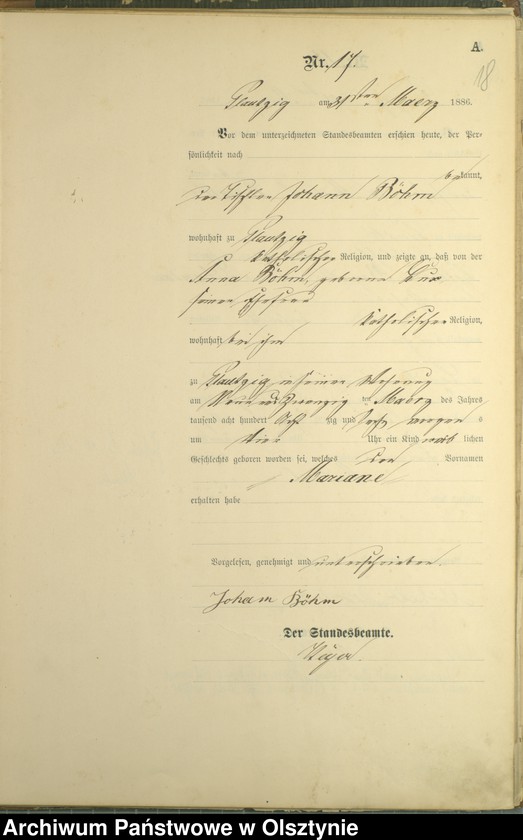 A.
18
Nr. 17.
am 31ten Maerz 1886.
Vor dem unterzeichneten Standesbeamten erschien heute, der Per-
sönlichkeit nach
bekannt,
der Tischler Johann Böhm
wohnhaft zu
katholischer Religion, und zeigte an, daß von der
Anna Böhm, geborene
seiner Ehefrau
katholischer Religion,
wohnhaft bei ihm
zu in seiner Wohnung
am Neun und Zwanzig ten Maerz des Jahres
tausend acht hundert Acht zig und Sechs morgens
um vier Uhr ein Kind weib lichen
Geschlechts geboren worden sei, welches den Vornamen
Mariane
erhalten habe
Vorgelesen, genehmigt und unterschrieben.
Johann Böhm
Der Standesbeamte.
Archiwum Państwowe w Olsztynie